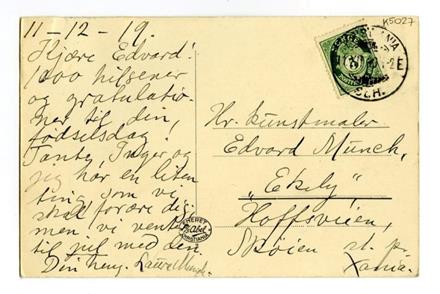 K5027
11-12-19.
Kjære Edvard!
1000 hilsener
og gratulatio-
ner til din
fødselsdag!
Tante, Inger og
jeg har en liten
ting som vi
skal forære dig,
men vi venter
til jul med den.
Din heng. Laura Munch.
Hr. kunstmaler
Edvard Munch,
"Ekely"
Hoffsveien,
Skøien st. pr.
Xania.